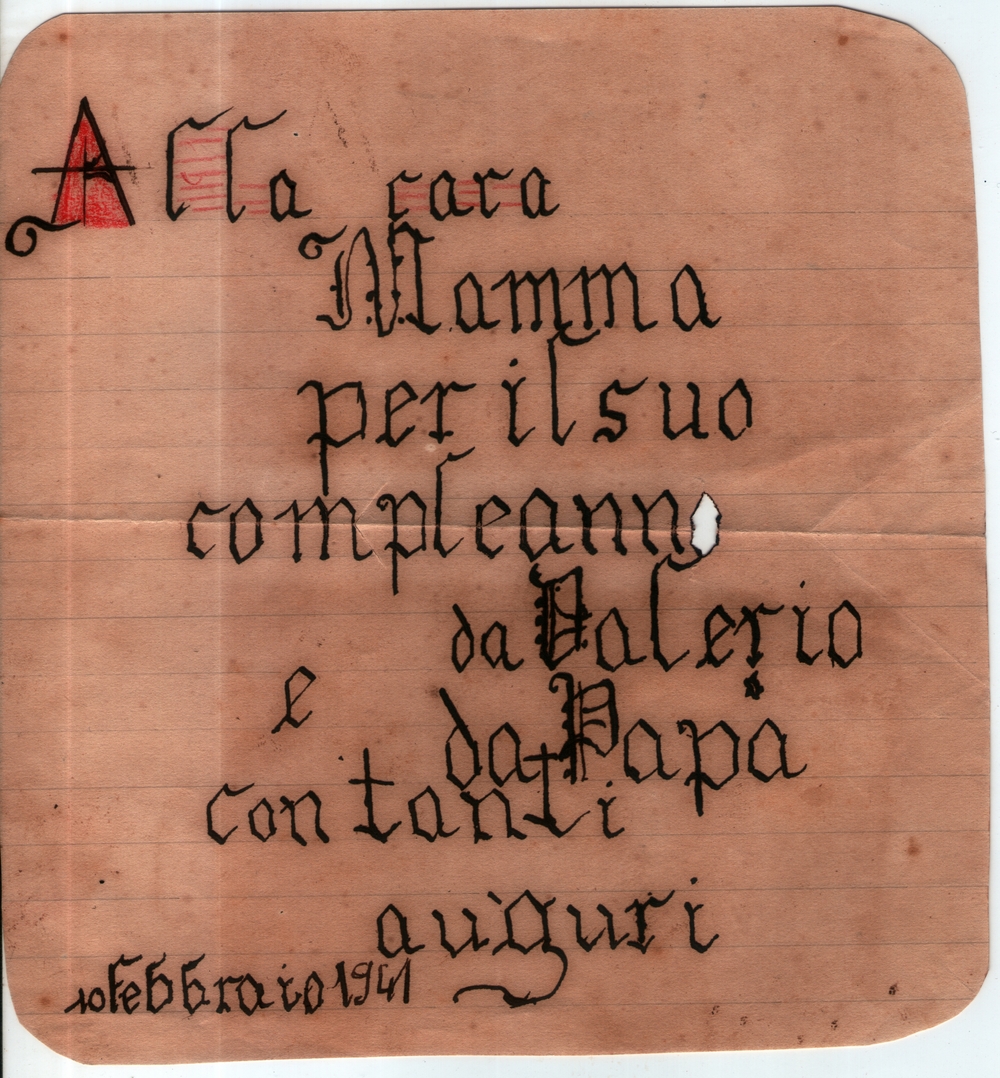 Alla cara
Mamma
per il suo
compleanno
da Valerio
e
da Papa
con tanti
auguri
10 febbraio 1941